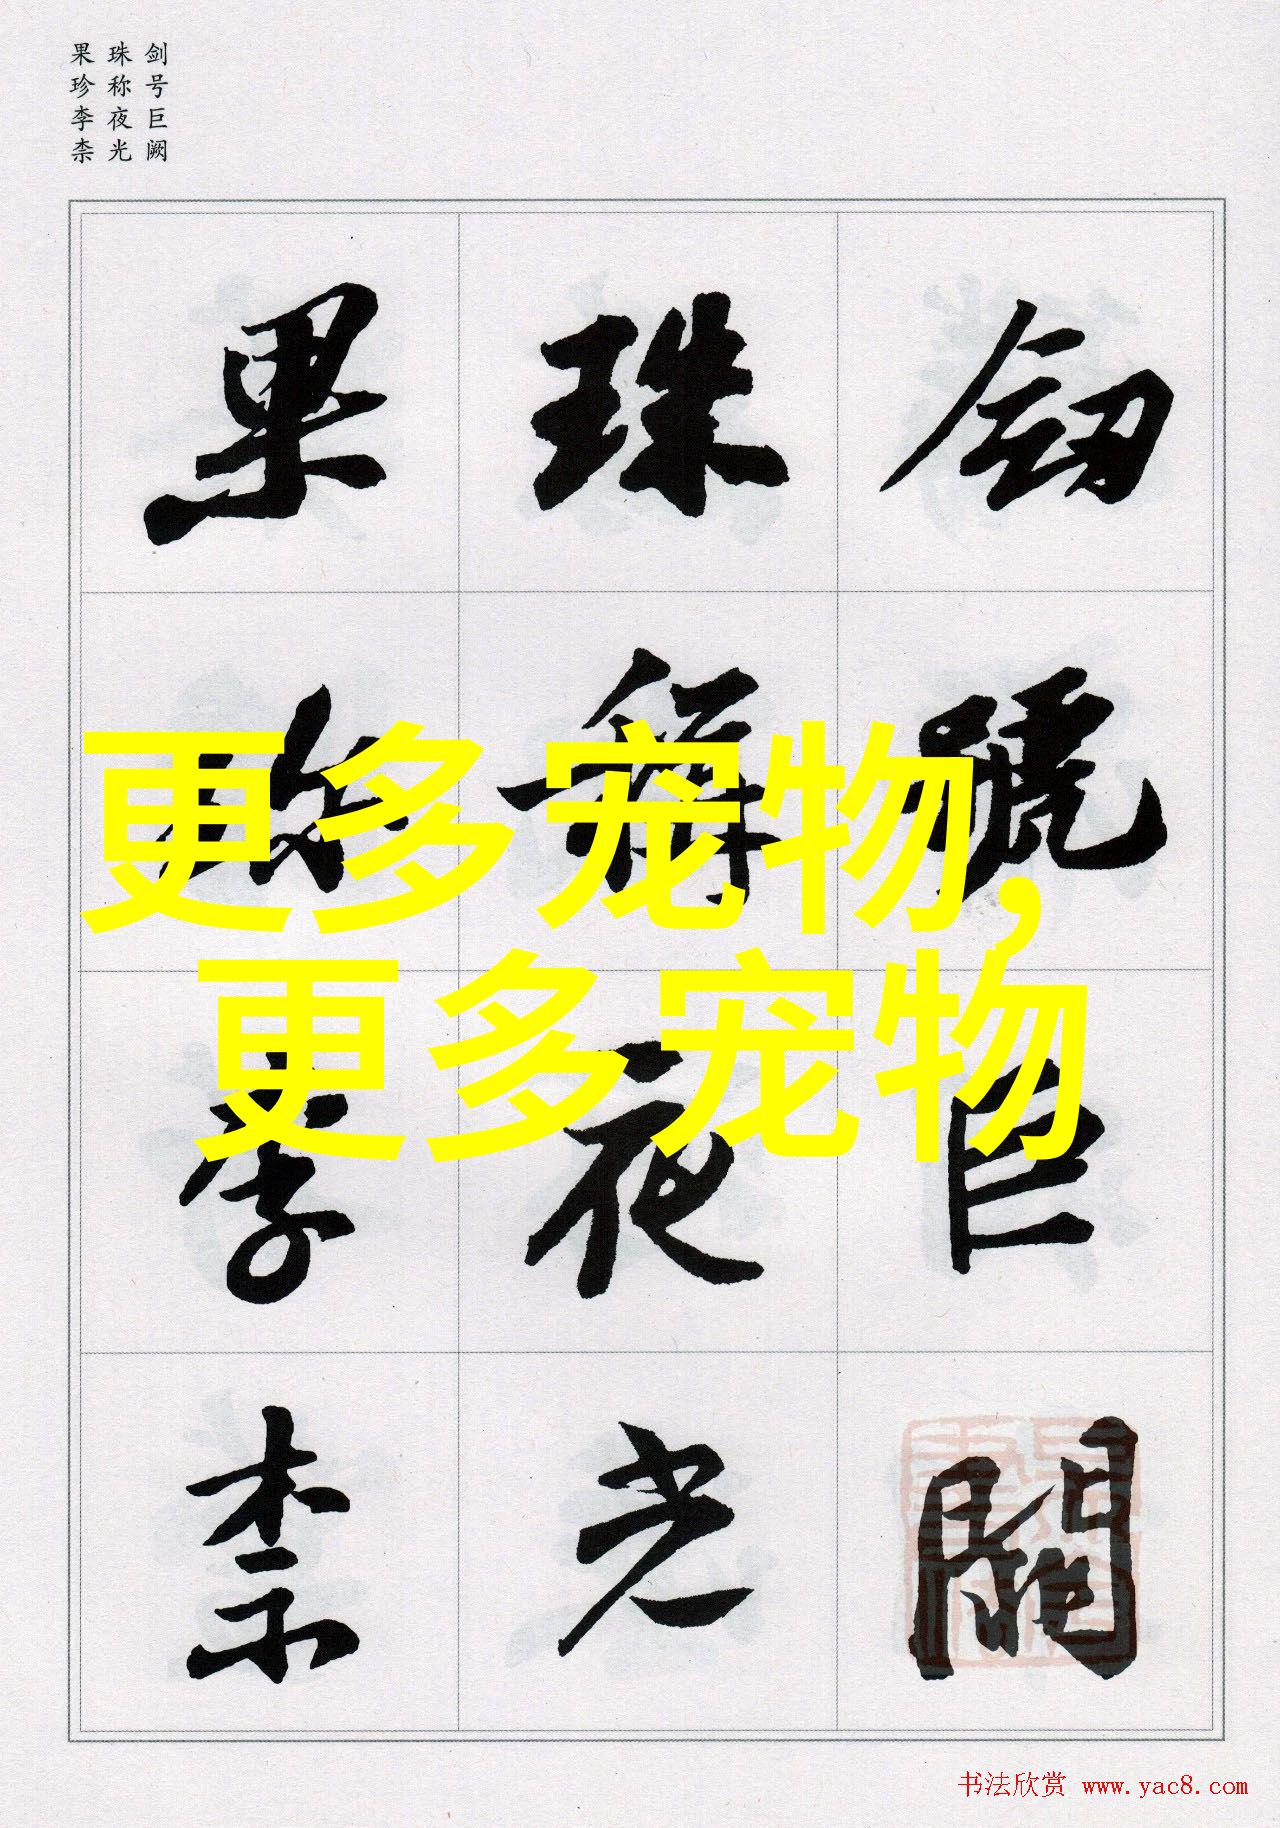 剑号巨阙
珠称夜光
果珍李柰
劍號巨闕
珠稱夜光
果珍李柰
更多宠物,
更多宠物
书法欣赏 www.yac8.com